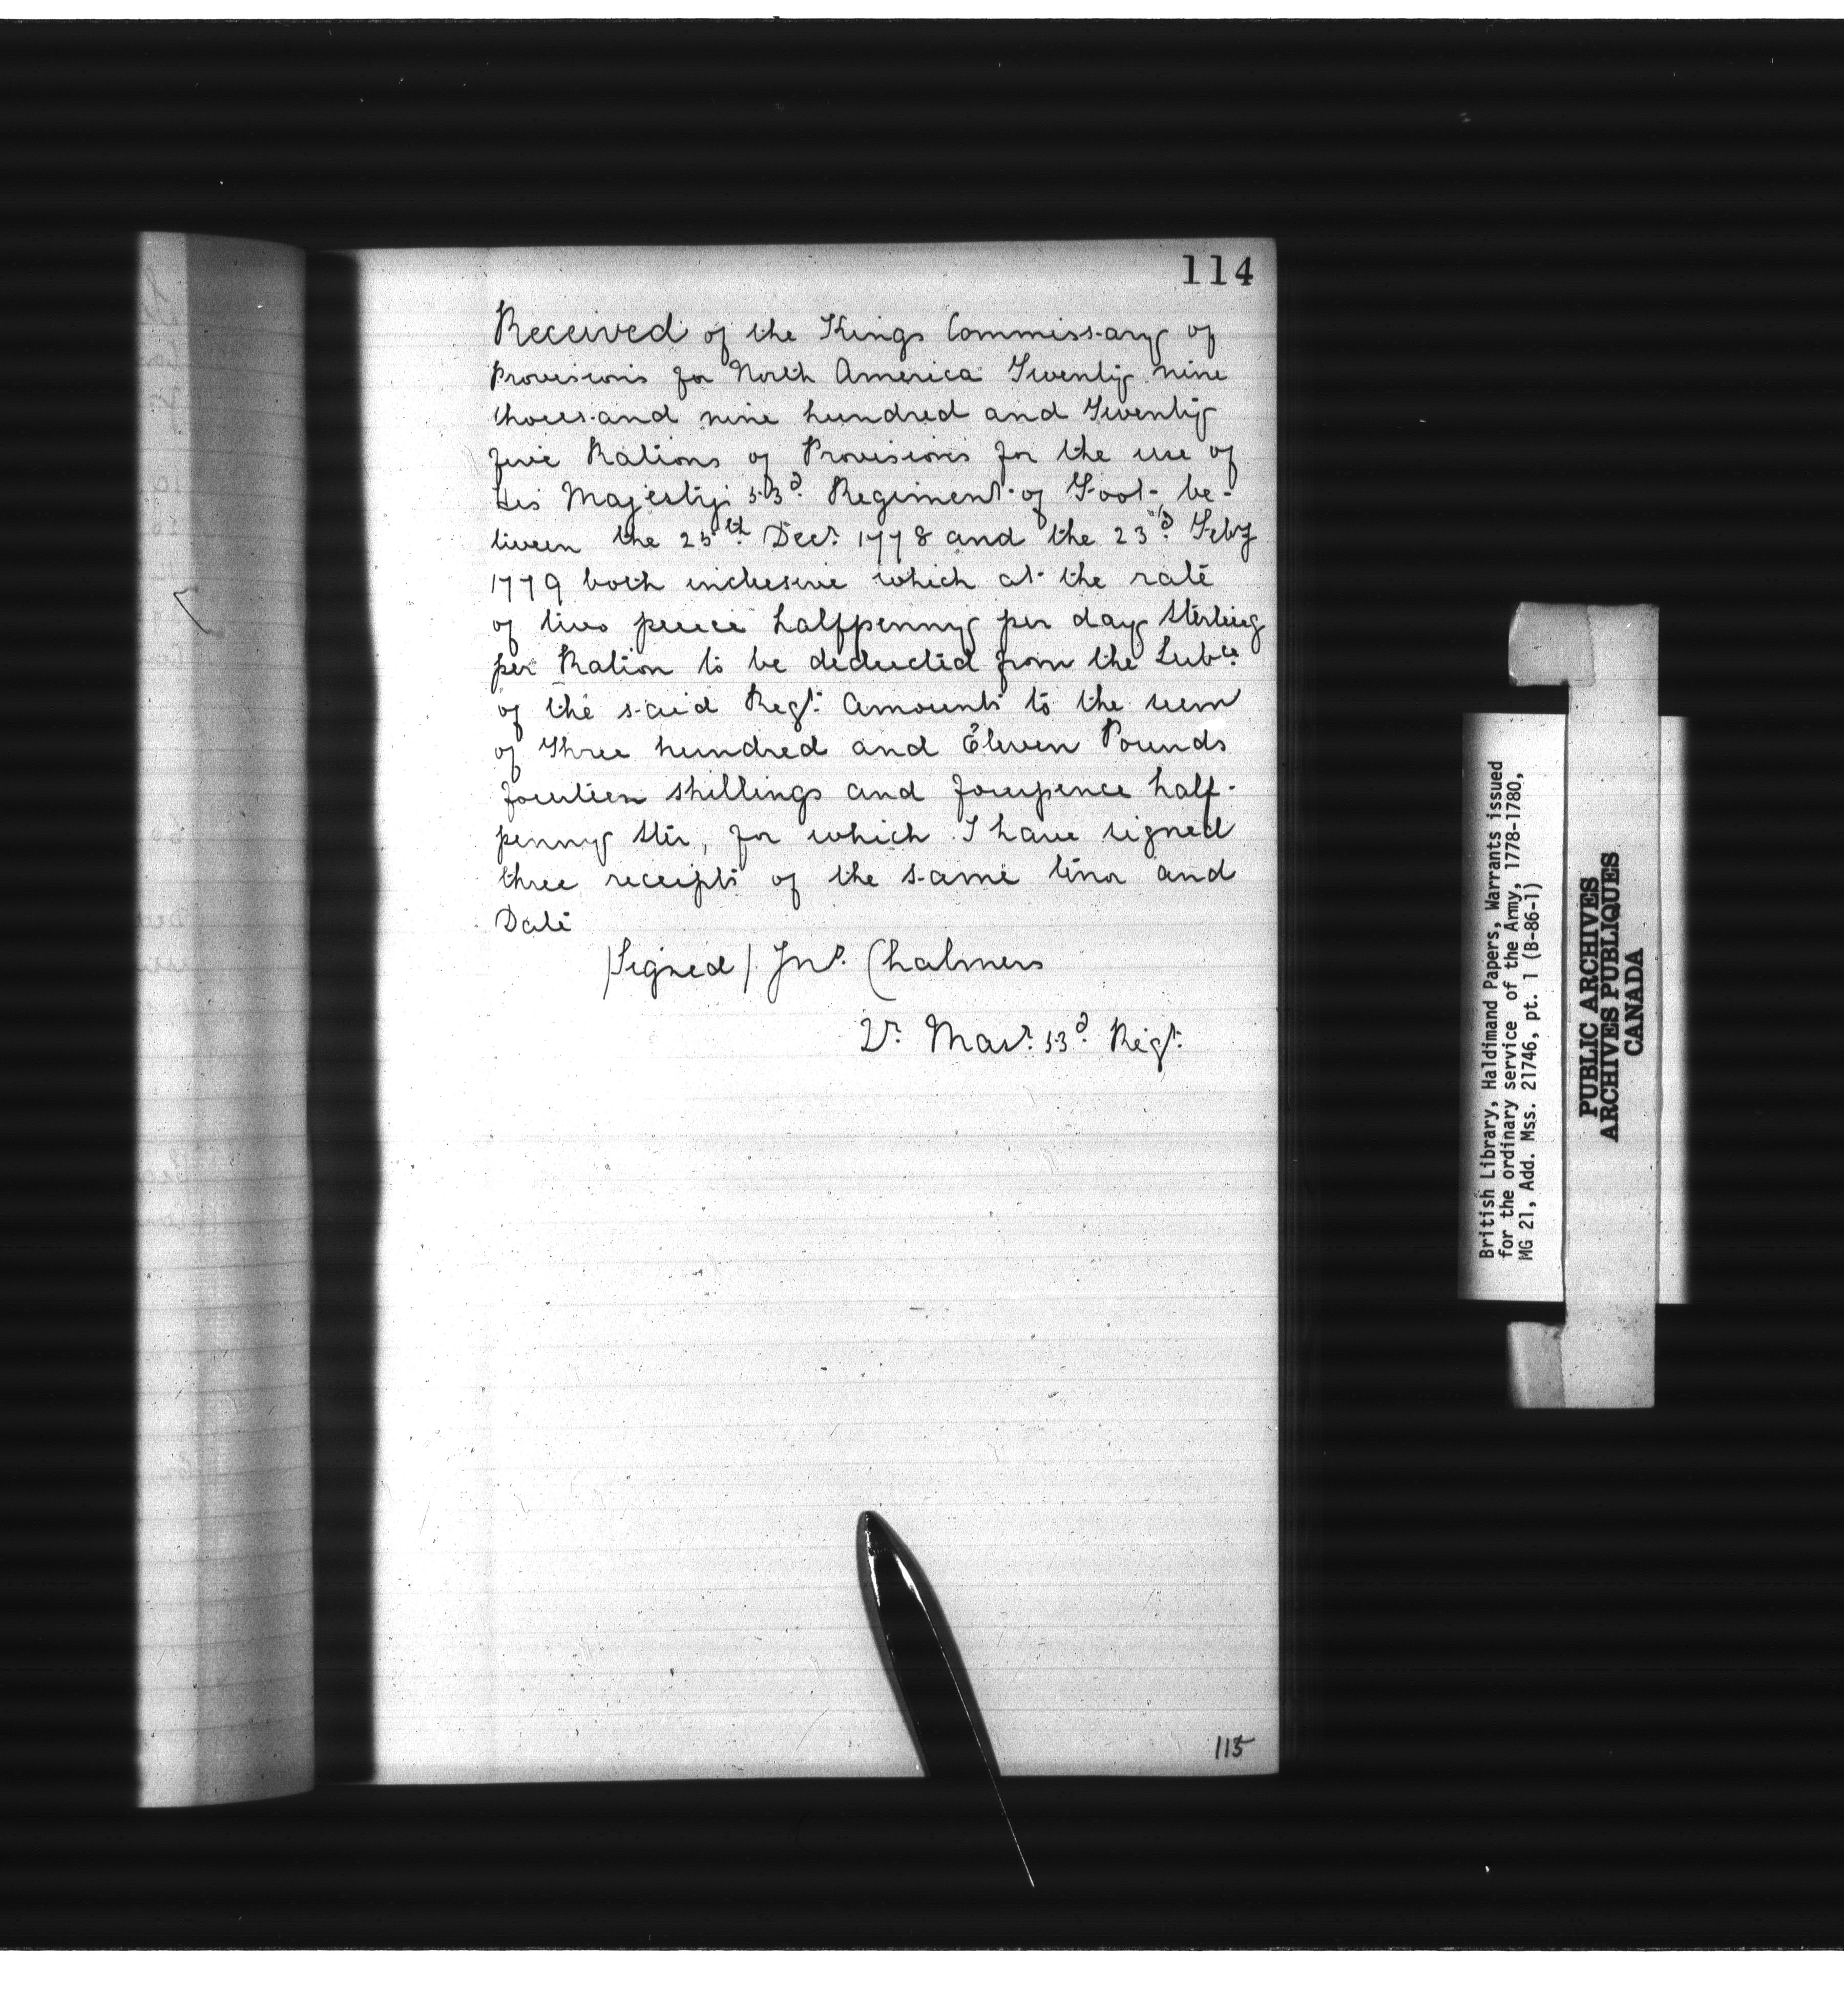 114
Received of the Kings Commissary of
Provisions for North America Twenty nine
thousand nine hundred and Twenty
five Rations of Provisions for the use of
his Majestys 53d. Regiment of Foot be-
tween the 25th. Decr. 1778 and the 23d. Feby
1779 both inclusive which at the rate
of two pence halfpenny per day Sterling
per Ration to be deducted from the Subce.
of the said Regt. amounts to the sum
of Three hundred and Eleven Pounds
fourteen shillings and fourpence half-
penny Ster, for which I have signed
three receipts of the same tinor and
Date
/Signed/ Jno. Chalmers
Qr. Masr. 53d. Regt.
115
British Library, Haldimand Papers, Warrants issued
for the ordinary service of the Army, 1778-1780,
MG 21, Add. Mss. 21746, pt. 1 (B-86-1)
PUBLIC ARCHIVES
ARCHIVES PUBLIQUES
CANADA